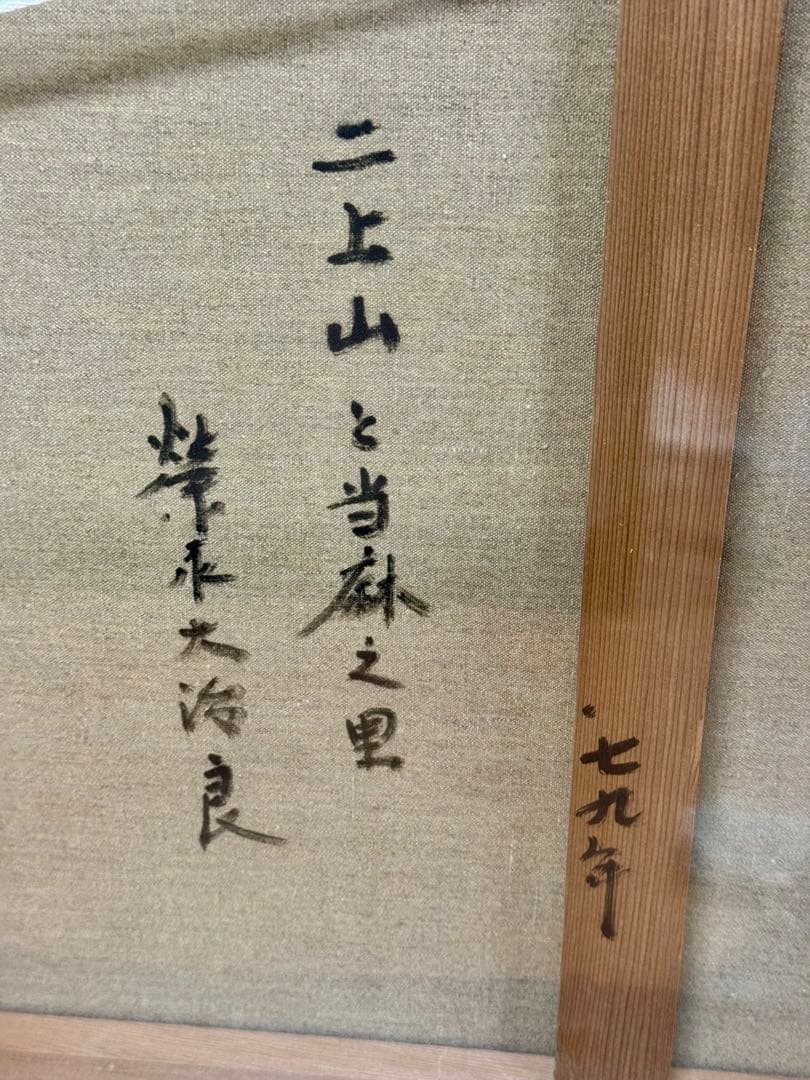 '七九年
二上山と当麻之里
榮永大治良